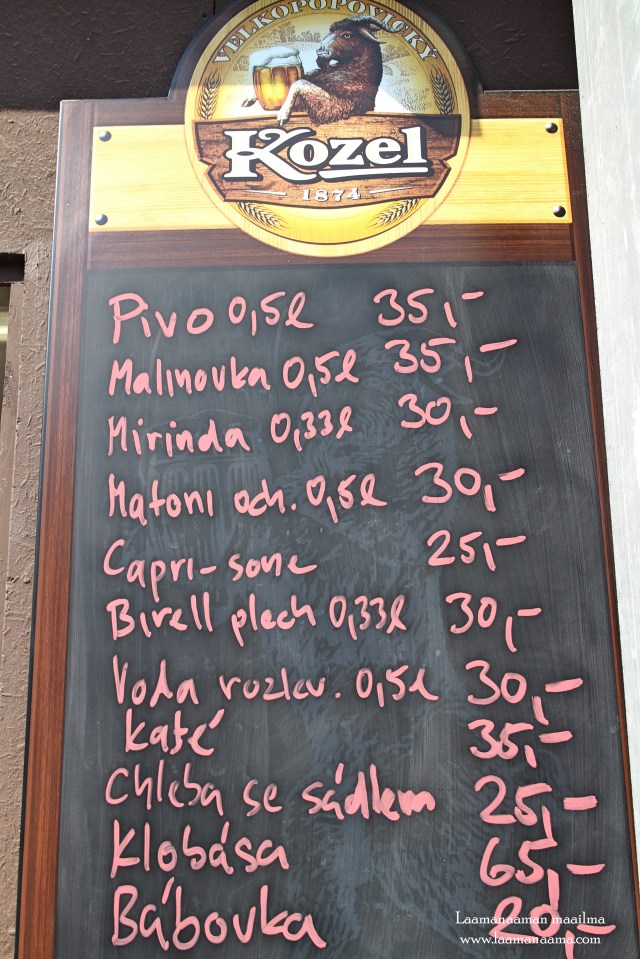 VELKOPOPOVICKÝ
Kozel
1874
Pivo 0,5l 35,-
Malinovka 0,5l 35,-
Mirinda 0,33l 30,-
Matoni och. 0,5l 30,-
Capri-sone 25,-
Birell plech 0,33l 30,-
Voda rozlev. 0,5l 30,-
Kafé 35,-
Chleba se sádlem 25,-
Klobása 65,-
Bábovka 20,-
Laamanaaman maailma
www.laamanaama.com